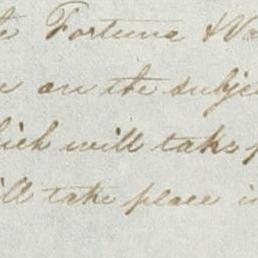 Fortuna & Va
on the subje
which will take p
will take place i